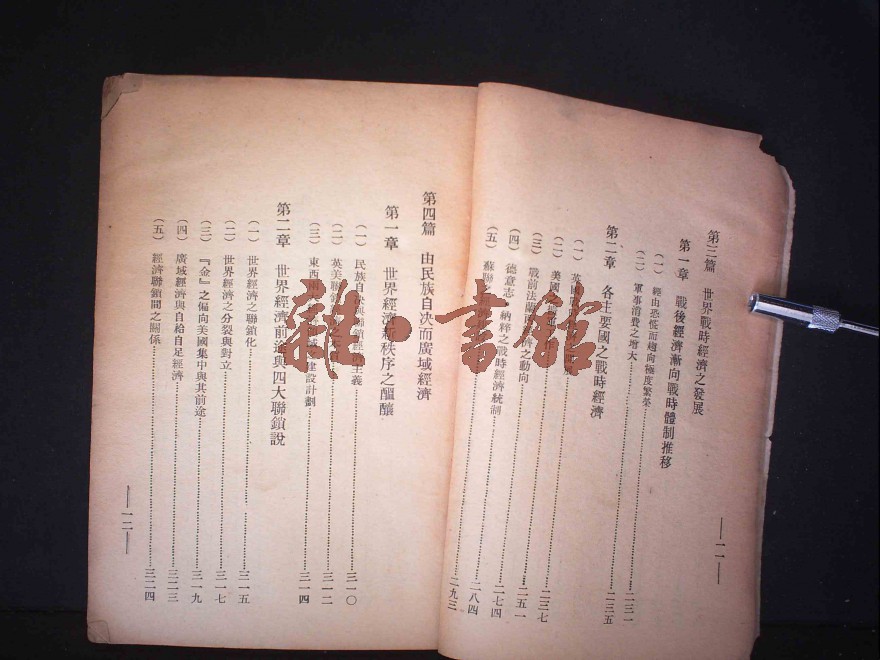 第三篇 世界戰時經濟之發展
第一章 戰後經濟漸向戰時體制推移
(一) 經由恐慌而趨向極度繁榮
(二) 軍事消費之增大……二三一
第二章 各主要國之戰時經濟……二三五
(一) 英國
(二) 美國……二三七
(三) 戰前法蘭 濟之動向……二五一
(四) 德意志 納粹之戰時經濟統制……二七四
(五) 蘇聯……二八四
二九三
—一一—
第四篇 由民族自決而廣域經濟
第一章 世界經濟新秩序之醞釀
(一) 民族自決與 主義……三一〇
(二) 英美聯……三一二
(三) 東西兩 建設計劃……三一四
第二章 世界經濟前途與四大聯鎖說
(一) 世界經濟之聯鎖化……三一五
(二) 世界經濟之分裂與對立……三一七
(三) 『金』之偏向美國集中與其前途……三一九
(四) 廣域經濟與自給自足經濟……三二三
(五) 經濟聯鎖間之關係……三二四
—一二—
雜·書館